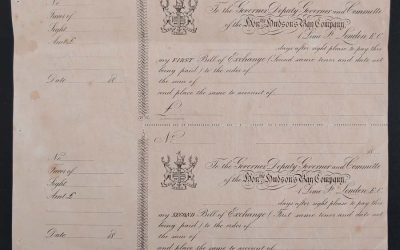 No.
Favor of
Sight
Amt. £
Date 18
To the Governor Deputy Governor and Committee
of the Honble. Hudson's Bay Company,
1 Lime St. London E.C.
days after sight please to pay this
my FIRST Bill of Exchange (Second same tenor and date not
being paid) to the order of
the sum of
and place the same to account of.
£
No.
18
No.
Favor of
Sight
Amt. £
Date 18
To the Governor Deputy Governor and Committee
of the Honble. Hudson's Bay Company,
1 Lime St. London E.C.
days after sight please to pay this
my SECOND Bill of Exchange (First same tenor and date not
being paid) to the order of
the sum of
and place the same to account of